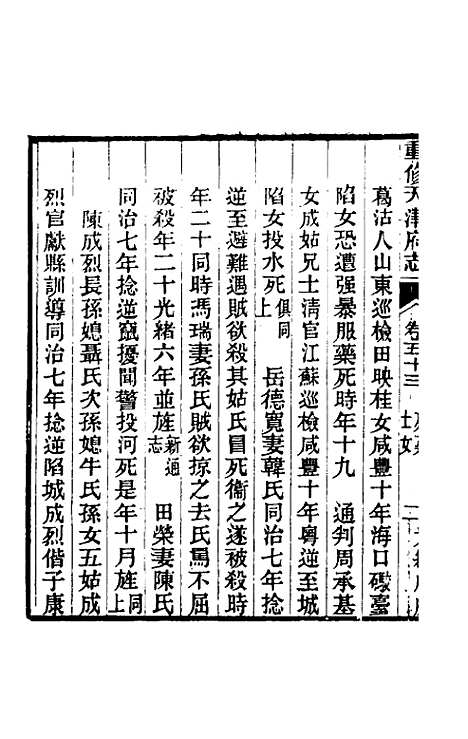 重修天津府志 卷五十三
葛沽人山東巡檢田映桂女咸豐十年海口礮臺
陷女恐遭强暴服藥死時年十九 通判周承基
女成姑兄士淸官江蘇巡檢咸豐十年粤逆至城
陷女投水死俱同上 岳德寬妻韓氏同治七年捻
逆至避難遇賊欲殺其姑氏冒死衞之遂被殺時
年二十同時馮瑞妻孫氏賊欲掠之去氏罵不屈
被殺年二十光緒六年並旌新通志 田榮妻陳氏
同治七年捻逆竄擾聞警投河死是年十月旌同上
陳成烈長孫媳聶氏次孫媳牛氏孫女五姑成
烈官獻縣訓導同治七年捻逆陷城成烈偕子康